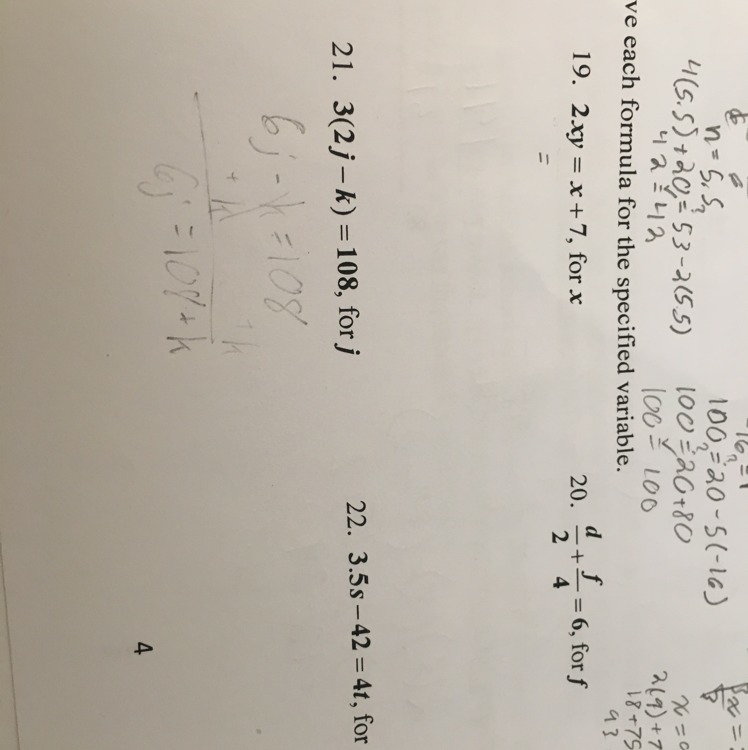 n = 5.5
4(5.5) + 20 ≟ 53 - 2(5.5)
42 = 42
100 ≟ 20 - 5(-16)
100 ≟ 20 + 80
100 = 100
2(9) + 7
18 + 75
93
ve each formula for the specified variable.
19. 2xy = x + 7, for x
=
20. d/2 + f/4 = 6, for f
21. 3(2j – k) = 108, for j
6j - k = 108
+ k + k
6j = 108 + k
22. 3.5s – 42 = 4t, for
4